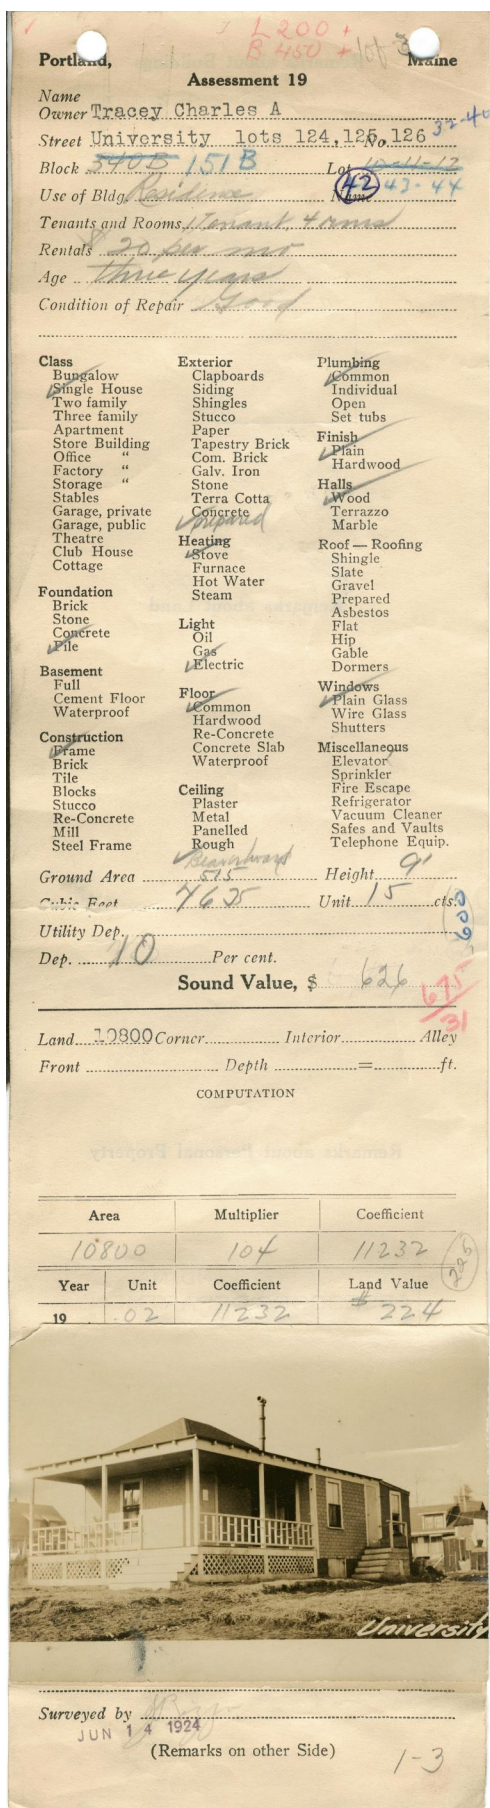 L 200 +
B 450 +
Portland, Maine
Assessment 19
Name
Owner Tracey Charles A
Street University lots 124,125,126 No. 32-40
Block 340B 151B Lot 10-11-12
Use of Bldg. Residence Name 42 43-44
Tenants and Rooms 1 Tenant, 4 rms
Rentals $20 per mo
Age three years
Condition of Repair Good
Class
Bungalow
Single House
Two family
Three family
Apartment
Store Building
Office "
Factory "
Storage "
Stables
Garage, private
Garage, public
Theatre
Club House
Cottage
Foundation
Brick
Stone
Concrete
Pile
Basement
Full
Cement Floor
Waterproof
Construction
Frame
Brick
Tile
Blocks
Stucco
Re-Concrete
Mill
Steel Frame
Exterior
Clapboards
Siding
Shingles
Stucco
Paper
Tapestry Brick
Com. Brick
Galv. Iron
Stone
Terra Cotta
Concrete
prepared
Heating
Stove
Furnace
Hot Water
Steam
Light
Oil
Gas
Electric
Floor
Common
Hardwood
Re-Concrete
Concrete Slab
Waterproof
Ceiling
Plaster
Metal
Panelled
Rough
Beaverboard
Plumbing
Common
Individual
Open
Set tubs
Finish
Plain
Hardwood
Halls
Wood
Terrazzo
Marble
Roof — Roofing
Shingle
Slate
Gravel
Prepared
Asbestos
Flat
Hip
Gable
Dormers
Windows
Plain Glass
Wire Glass
Shutters
Miscellaneous
Elevator
Sprinkler
Fire Escape
Refrigerator
Vacuum Cleaner
Safes and Vaults
Telephone Equip.
Ground Area 515 Height 9'
Cubic Feet 4635 Unit 15 cts.
Utility Dep. 600
Dep. 10 Per cent.
Sound Value, $ 626
675/31
Land 10800 Corner Interior Alley
Front Depth = ft.
COMPUTATION
Area Multiplier Coefficient
10800 104 11232
225
Year Unit Coefficient Land Value
19 .02 11232 $224
University
Surveyed by
JUN 14 1924
(Remarks on other Side)
1-3